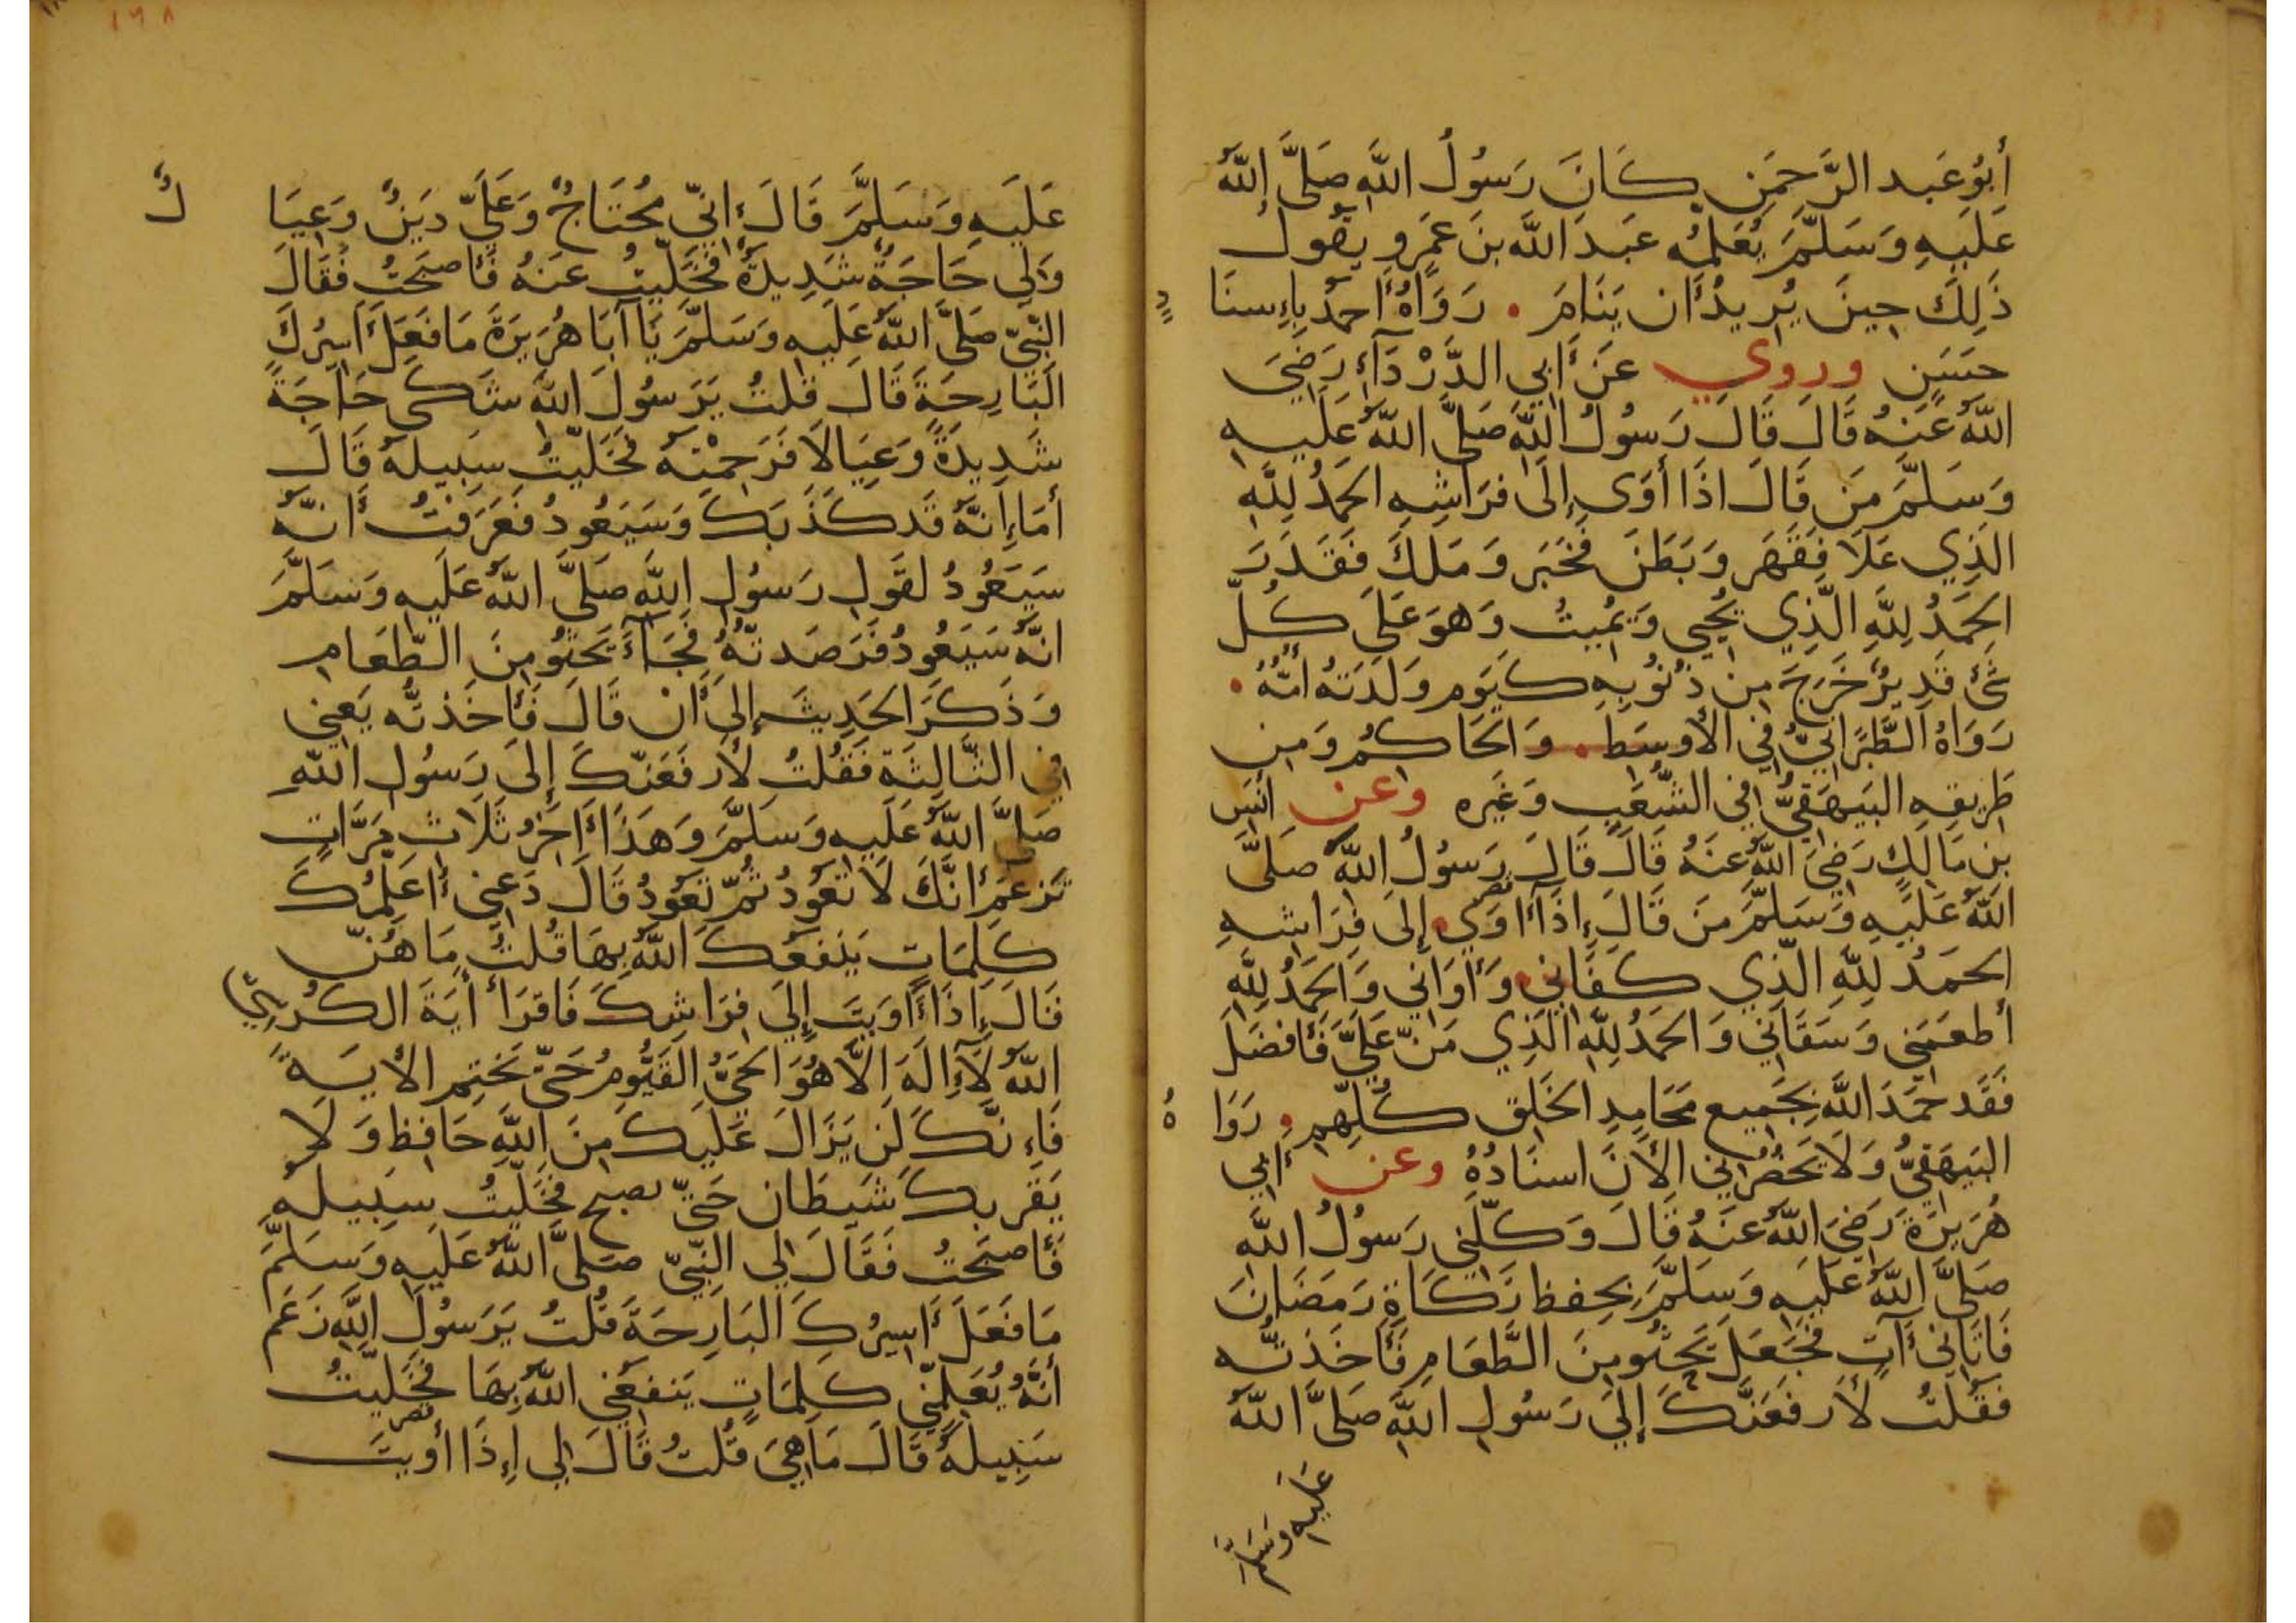 أبُو عَبد الرَّحمَنِ كَانَ رَسُولُ اللَّهِ صَلَّى اللَّهُ
عَلَيهِ وَسَلَّمَ يُعَلِّمُه عَبدَ اللَّه بنَ عَمَرو يقُولُ
ذَلِكَ حِينَ يُرِيدُ أن يَنَامَ . رَوَاهُ أحمدُ بِإسنَادٍ
حسَنٍ وروي عَن أبي الدَّرْدَآءِ رَضِيَ
اللَّهُ عَنهُ قَالَ قَالَ رَسُولُ اللَّهِ صَلَّى اللَّهُ عَلَيهِ
وَسَلَّمَ مَن قَالَ اذَا أوَى إلَى فرَاشِهِ الحَمدُ لِلَّهِ
الَّذِي عَلَا فَقَهَر وَبَطَنَ فَخَبَر وَمَلكَ فَقَدَرَ
الحَمدُ لِلَّهِ الَّذِي يُحيِي وَيُمِيتُ وَهوَ عَلَى كُلِّ
شَئٍ قَدِيرٌ خَرَجَ مِن ذُنُوبِهِ كَيَوم وَلَدَتهُ أمُّهُ .
رَوَاهُ الطَّبَرَانِيُّ فِي الأوسَط . وَالحَاكمُ وَمِن
طَرِيقِهِ البَيهَقِيُّ في الشُّعَبِ وَغَيره وعن أنَسِ
بنِ مَالِكٍ رَضِيَ اللَّهُ عَنهُ قَالَ قَالَ رَسُولُ اللَّهِ صَلَّى
اللَّهُ عَلَيهِ وَسَلَّمَ مَن قَالَ إذَا أوَى إلَى فِرَاشهِ
الحمَدُ لِلَّهِ الَّذِي كفَاني وَأوَاني وَالحَمدُ لِلَّهِ
أطعَمَني وَسَقَاني وَالحَمدُ لِلَّهِ الَّذِي مَنَّ عَلَيَّ فَأفضَلَ
فَقَد حَمَدَ اللَّهَ بِجَمِيعِ مَحَامِدِ الخَلقِ كُلِّهِم . رَوَاهُ
البَيهَقِيُّ وَلَا يَحضُرُني الأنَ اسنَادُهُ وعن أبي
هُرَيرَةَ رَضِيَ اللَّهُ عَنهُ قَالَ وَكَّلَني رَسُولُ اللَّهِ
صَلَّى اللَّهُ عَلَيهِ وَسَلَّمَ بِحِفظ زَكَاةِ رَمَضَانَ
فَأتَاني آتٍ فَجَعَلَ يَحثُو مِنَ الطَّعَامِ فَأخَذتُّه
فقُلتُ لأرفَعَنَّكَ إلَى رَسُولِ اللَّهِ صَلَّى اللَّهُ
عَلَيهِ وَسَلَّمَ
١٦٨
عَلَيهِ وَسَلَّمَ قَالَ إنِّي مُحتَاجٌ وَعَلَيَّ دَينٌ وَعِيَالٌ
وَلِي حَاجَةٌ شَدِيدَةٌ فَخَلَّيتُ عَنهُ فَأصبَحتُ فَقَالَ
النَّبِيّ صَلَّى اللَّهُ عَلَيهِ وَسَلَّمَ يَا آبَا هُرَيرَةَ مَا فَعَلَ أسِيرُكَ
البَارِحَةَ قَالَ قلتُ يَرَسُولَ اللَّهِ شَكَى حَاجَةً
شَدِيدَةً وَعِيَالًا فَرَحِمْتهُ فَخَلَّيتُ سَبِيلَهُ قَالَ
أمَا إنَّهُ قَد كَذَبَكَ وَسَيَعُودُ فَعَرَفتُ أنَّهُ
سَيَعُودُ لقَولِ رَسُولِ اللَّهِ صَلَّى اللَّهُ عَلَيهِ وَسَلَّمَ
انَّهُ سَيَعُودُ فَرَصَدتُّهُ فَجَآءَ يَحثُو مِنَ الطَّعَامِ
وَذَكَرَ الحَدِيثَ إلَى أن قَالَ فَأخَذتُّه يَعني
في الثَّالِثَةِ فَقُلتُ لأرفَعَنَّكَ إلَى رَسُولِ اللَّهِ
صَلَّى اللَّهُ عَلَيهِ وَسَلَّمَ وَهَذَا أخَرُ ثَلَاث مَرَّاتٍ
تَزعَمُ أنَّكَ لَا تَعُودُ ثُمَّ تَعُودُ قَالَ دَعِني أعَلِّمُكَ
كَلِمَاتٍ يَنفَعُكَ اللَّهُ بِهَا قُلتُ مَا هُنَّ
قَالَ إذَا أوَيتَ إلَى فرَاشِكَ فَاقرَأ أيَةَ الكُرسِيّ
اللَّهُ لَآ إلَهَ الَّا هُوَ الحَيُّ القَيُّومُ حَتّى تَختِم الأيَةَ
فَإنَّكَ لَن يَزَالَ عَلَيكَ مِنَ اللَّهِ حَافِظ وَلَا
يَقرَبكَ شَيطَان حَتّى تصبح فَخَلَّيتُ سَبِيلَهُ
فَأصبَحتُ فَقَالَ لِي النَّبِيّ صَلَّى اللَّهُ عَلَيهِ وَسَلَّمَ
مَا فَعَلَ أسِيرُكَ البَارِحَةَ قُلتُ يَرَسُولَ اللَّهِ زَعَم
أنَّهُ يُعَلِّمُني كَلِمَاتٍ يَنفعُني اللَّهُ بِهَا فَخَلَّيتُ
سَبِيلَهُ قَالَ مَا هِيَ قُلتُ قَالَ لِي إذَا أويتَ